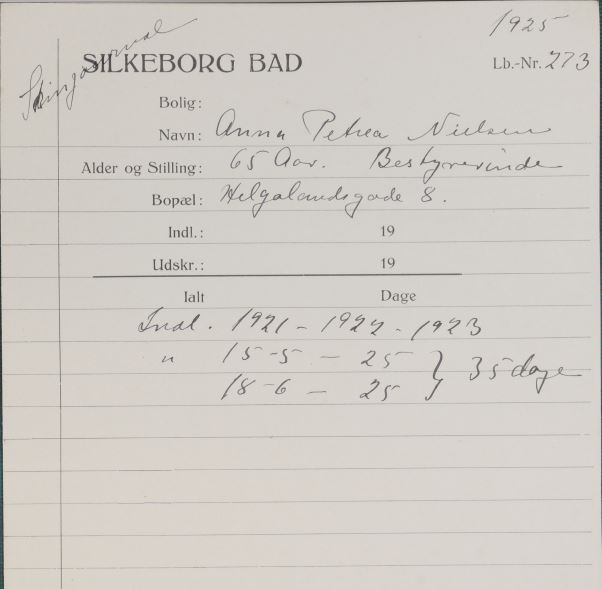 1925
SILKEBORG BAD
Lb.-Nr. 273
Bolig:
Navn: Anna Petrea Nielsen
Alder og Stilling: 65 Aar. Bestyrerinde
Bopæl: Helgolandsgade 8.
Indl.: 19
Udskr.: 19
Ialt Dage
Indl. 1921 - 1922 - 1923
" 15-5 - 25 } 35 dage
18-6 - 25